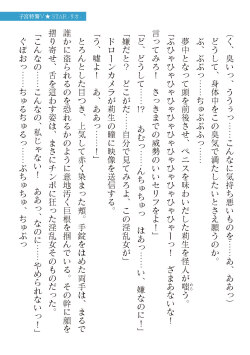 （く、臭いっ、ううっ……こんなに気持ち悪いものを……あ、ああっ）
どうして、身体中をこの臭気で満たしたいとさえ願うのか。
ぷ、ぷぶっ……ちゅぷぷっ……
夢中となって頭を前後させ、ペニスを味わいだした莉生を怪人が嗤う。
「ぶひゃひゃひゃひゃひゃひゃーっ！　ざまあないな！
言ってみろ！　さっきまでの威勢のいいセリフをよ！」
（どうして……！？　あむっ……んちゅちゅっ　はあっ……い、嫌なのに！）
「嫌だと？　どこがだ！　自分で見てみろよ、この淫乱女が」
ドローンカメラが莉生の瞳に映像を送信する。
（う、嘘よ！　あ、ああっ！）
とろんとした目つき、上気して赤く染まった頬。手錠をはめた両手は、まるで
誰かに盗られるのを恐れるかのように意地汚く巨根を掴んでいる。その幹に顔を
摺り寄せ、舌を這わす姿は、まさにチンポに狂った淫乱女そのものだった。
（こんなの……こんなの、私じゃない！　ああっ、なのに……やめられないっ！）
ぐぽおっ……ちゅるちゅるっ……ぷちゅちゅ、ちゅぷっ